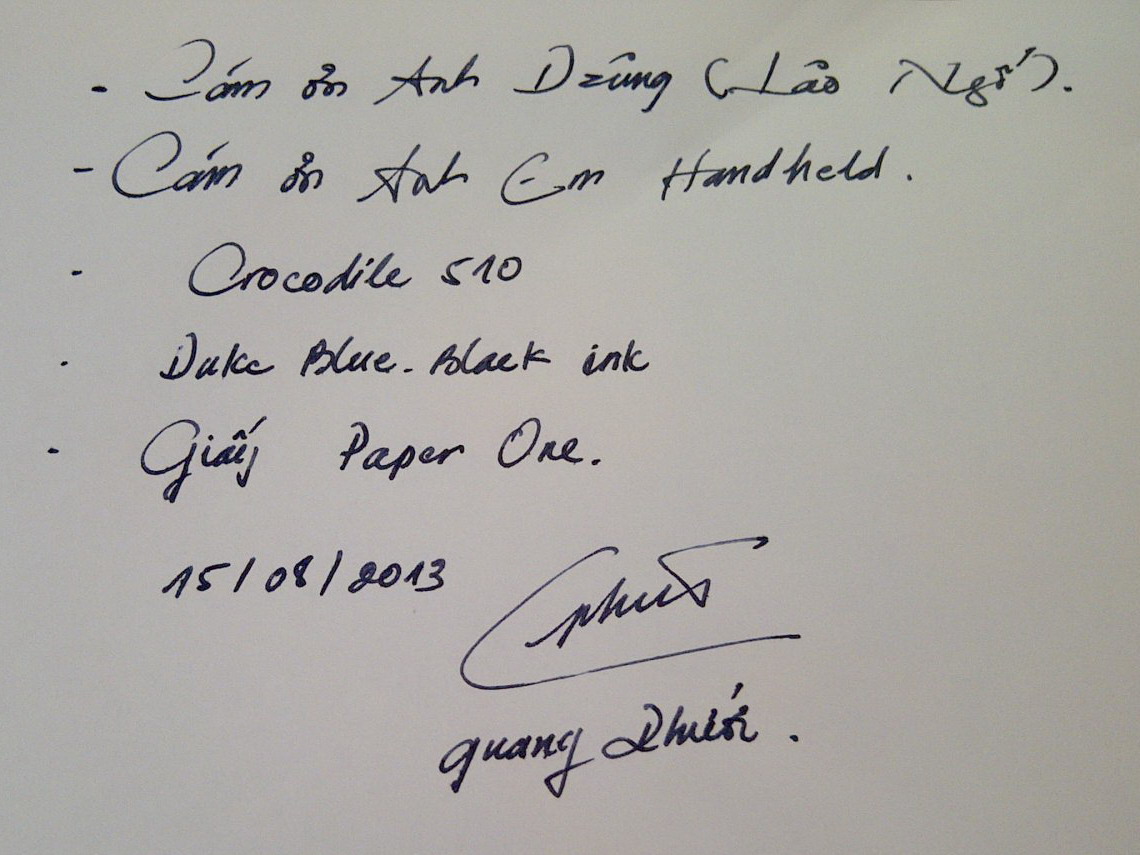 - Cám ơn Anh Dzũng (Lão Ngố).
- Cám ơn Anh Em Handheld.
- Crocodile 510
. Duke Blue-Black ink
- Giấy Paper One.
15/08/2013
Quang